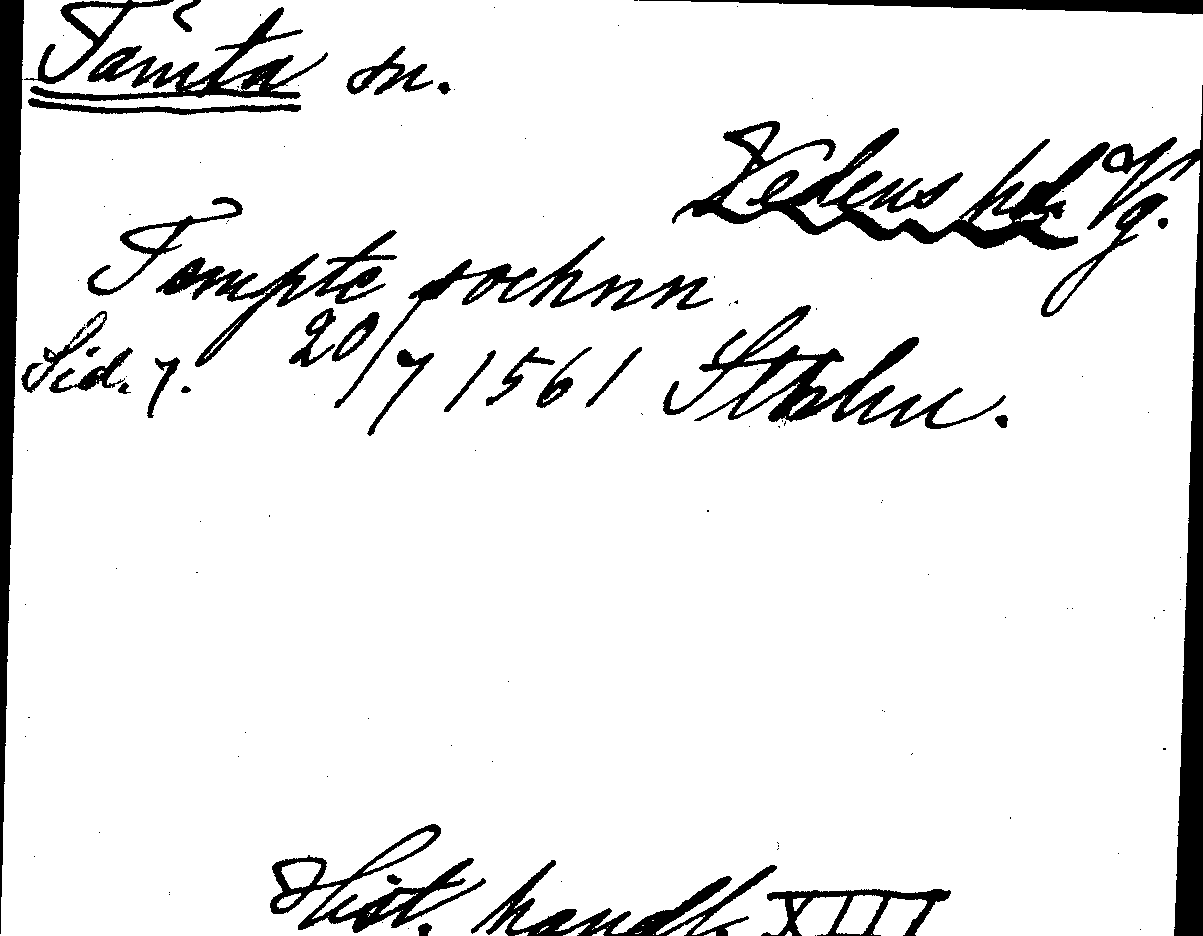 Tåmta sn.
Vedens hd Vg.
Tompte sochnn
Sid. 7. 20/7 1561 Stholm.
Hist. handl. XIII